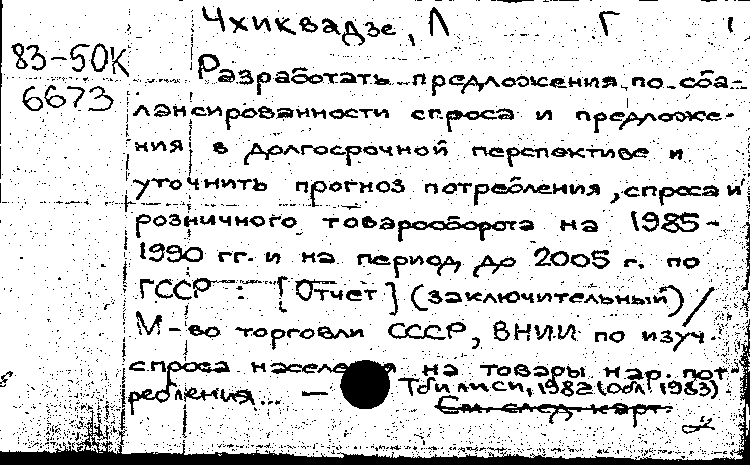 Чхиквадзе, Л Г
83-50К
6673
Разработать предложения по сба-
лансированности спроса и предложе-
ния в долгосрочной перспективе и
уточнить прогноз потребления, спроса и
розничного товарооборота на 1985-
1990 гг. и на период до 2005 г. по
ГССР : [Отчет] (заключительный) /
М-во торговли СССР, ВНИИ по изуч.
спроса населения на товары нар. пот-
ребления... — Тбилиси, 1982 (Обл 1983)
См. след. карт.